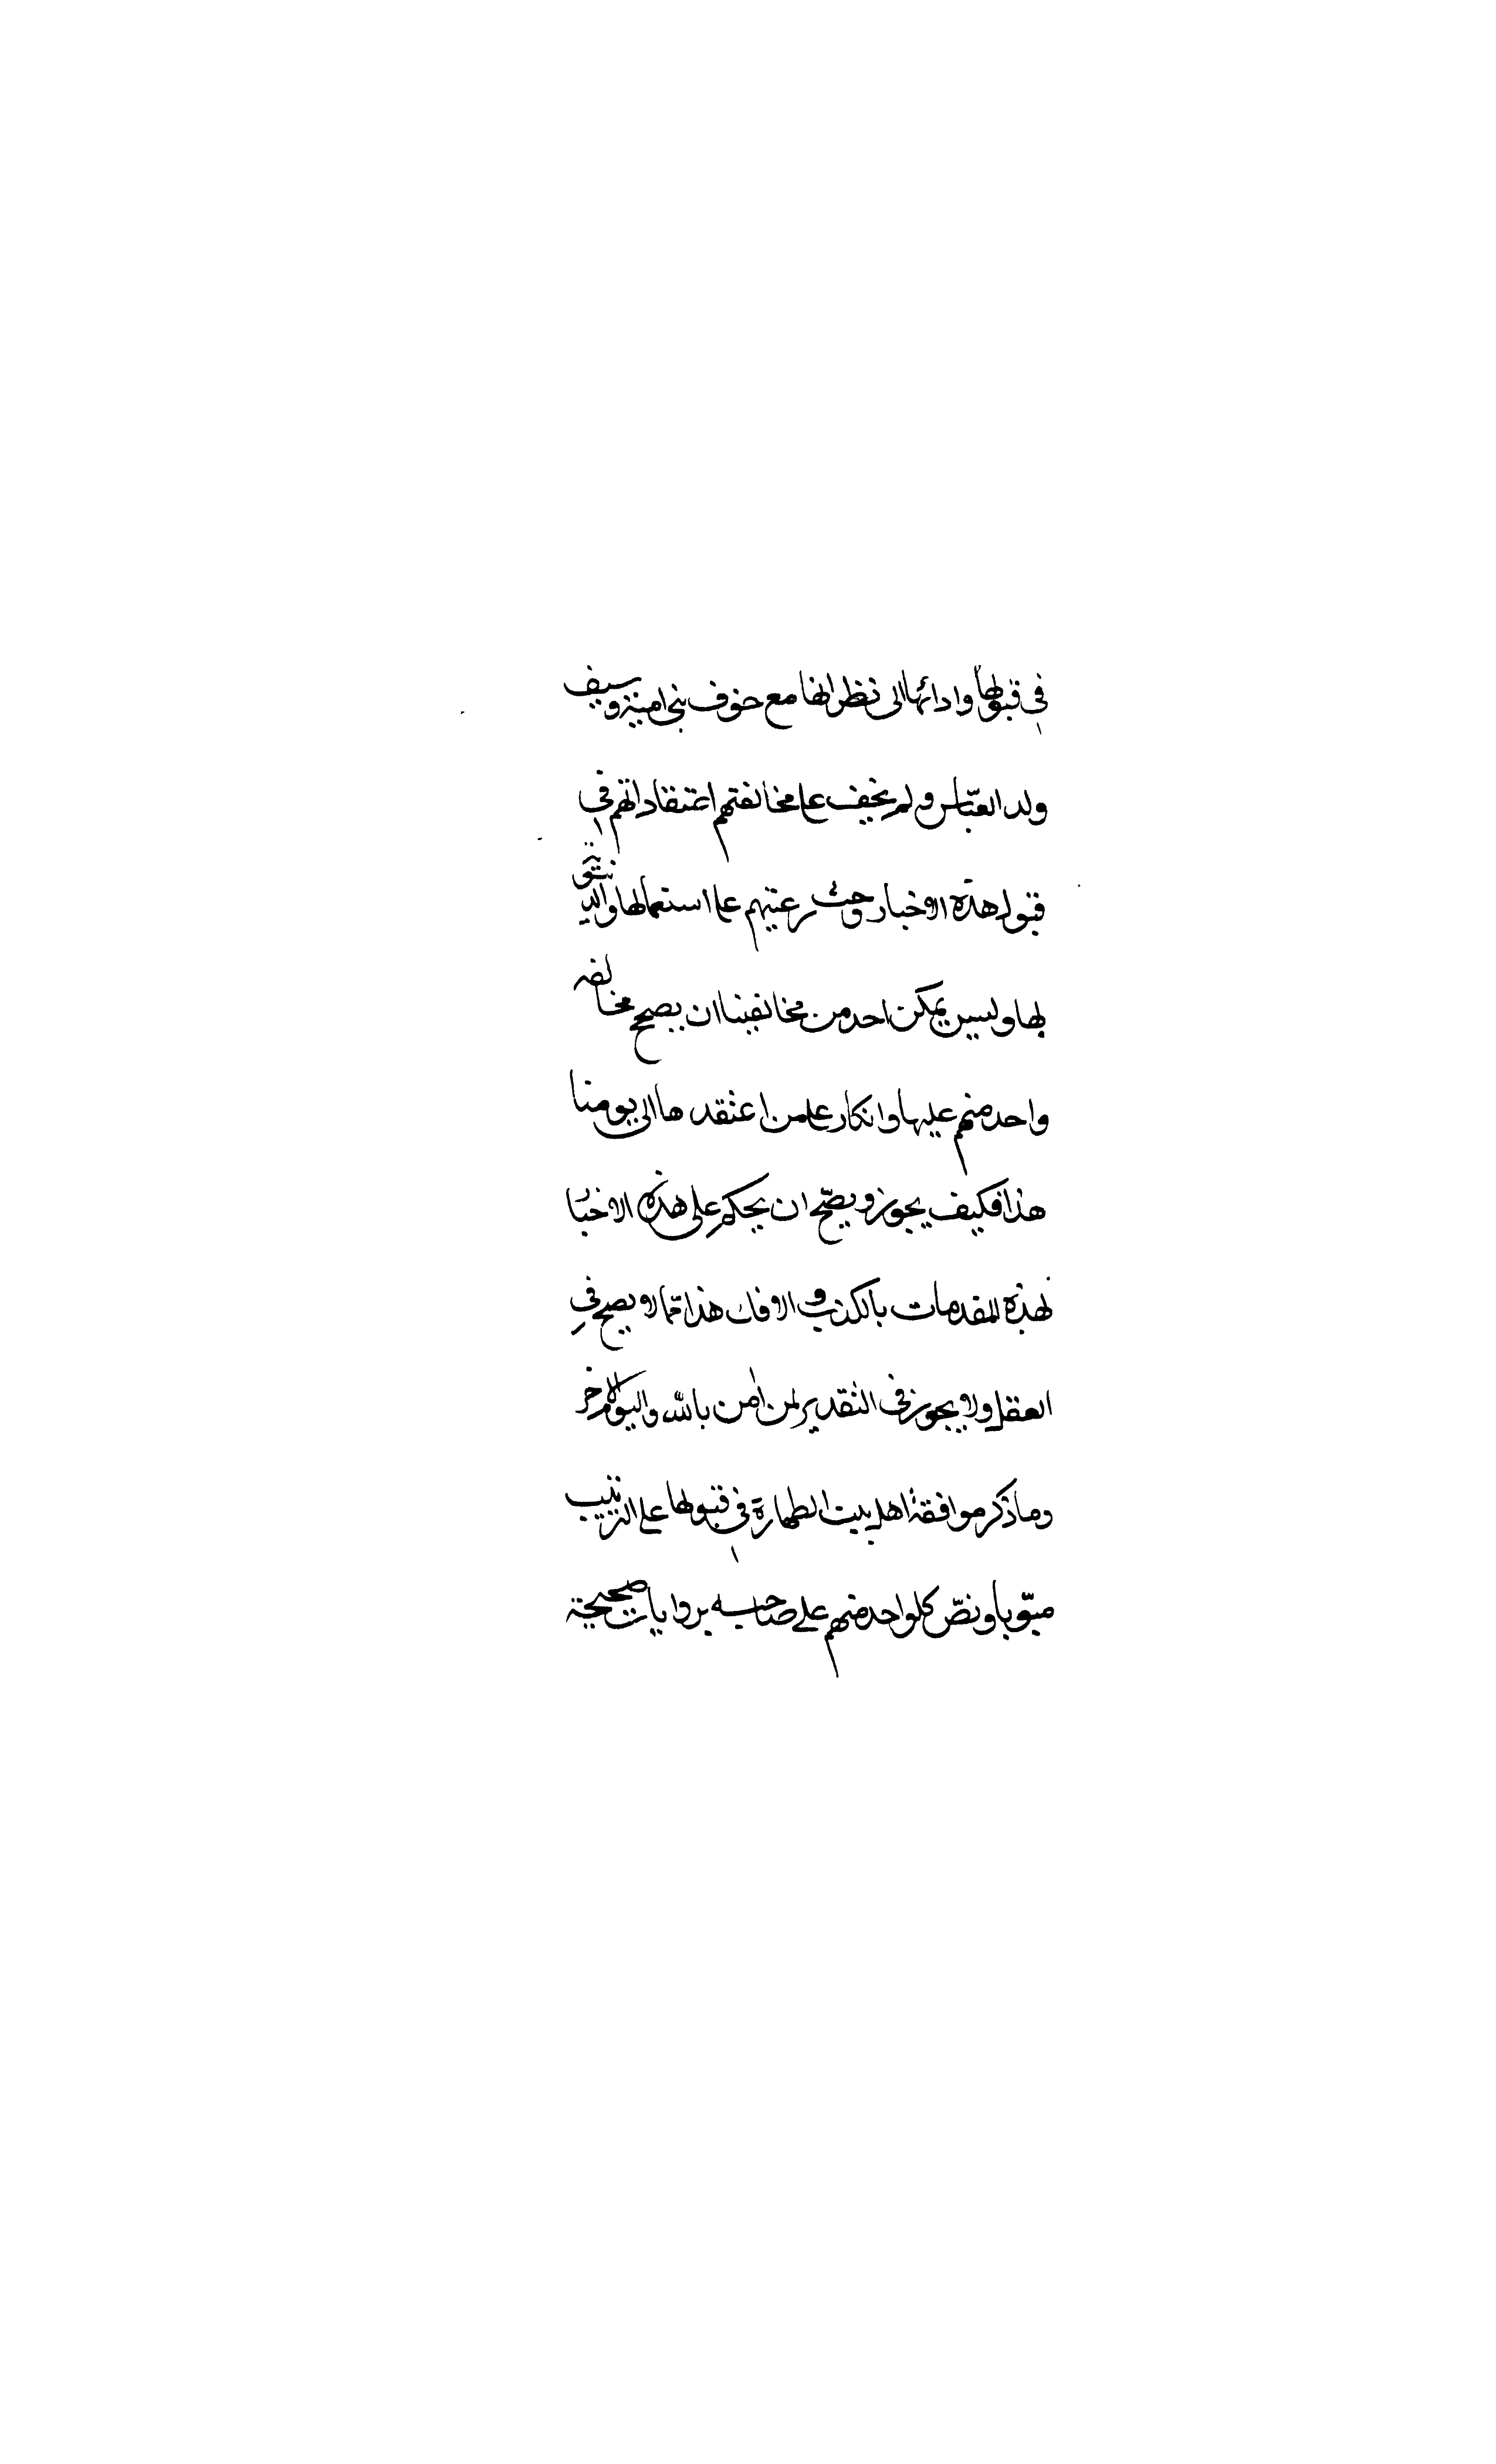 في قبولها وادائها الى نظرائها مع خوف بني امية وسيف
ولد العباس ولم يخف على مخالفتهم اعتقاداتهم في
قبول هذه الاخبار وحث رعيتهم على استعمالها والتدين
لها وليس يمكن احد من مخالفينا ان يصحح مخالفه
واحد منهم عليها وانكار على من اعتقدها الى يومنا
هذا فكيف يجوز ويصح ان يحكم على هذه الاخبار
لهذه المقدمات بالكذب والافك هذا مما لا يصح في
العقل ولا يجوز في التقدير لمن امن بالله واليوم الاخر
وما ذكر موافقة اهل بيت الطهارة في قبولها على الترتيب
مبوّبا ونصّ كل واحد منهم على صاحبه بروايات صحيحة